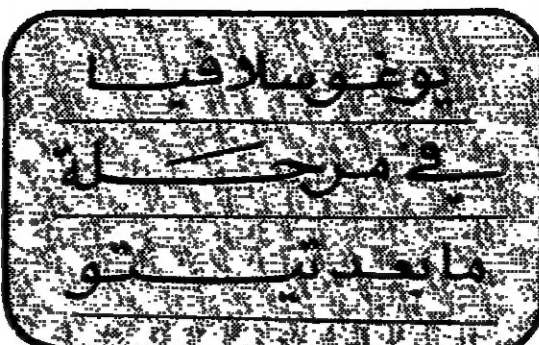 يوغوسلافيا
في مرحلة
ما بعد تيتو